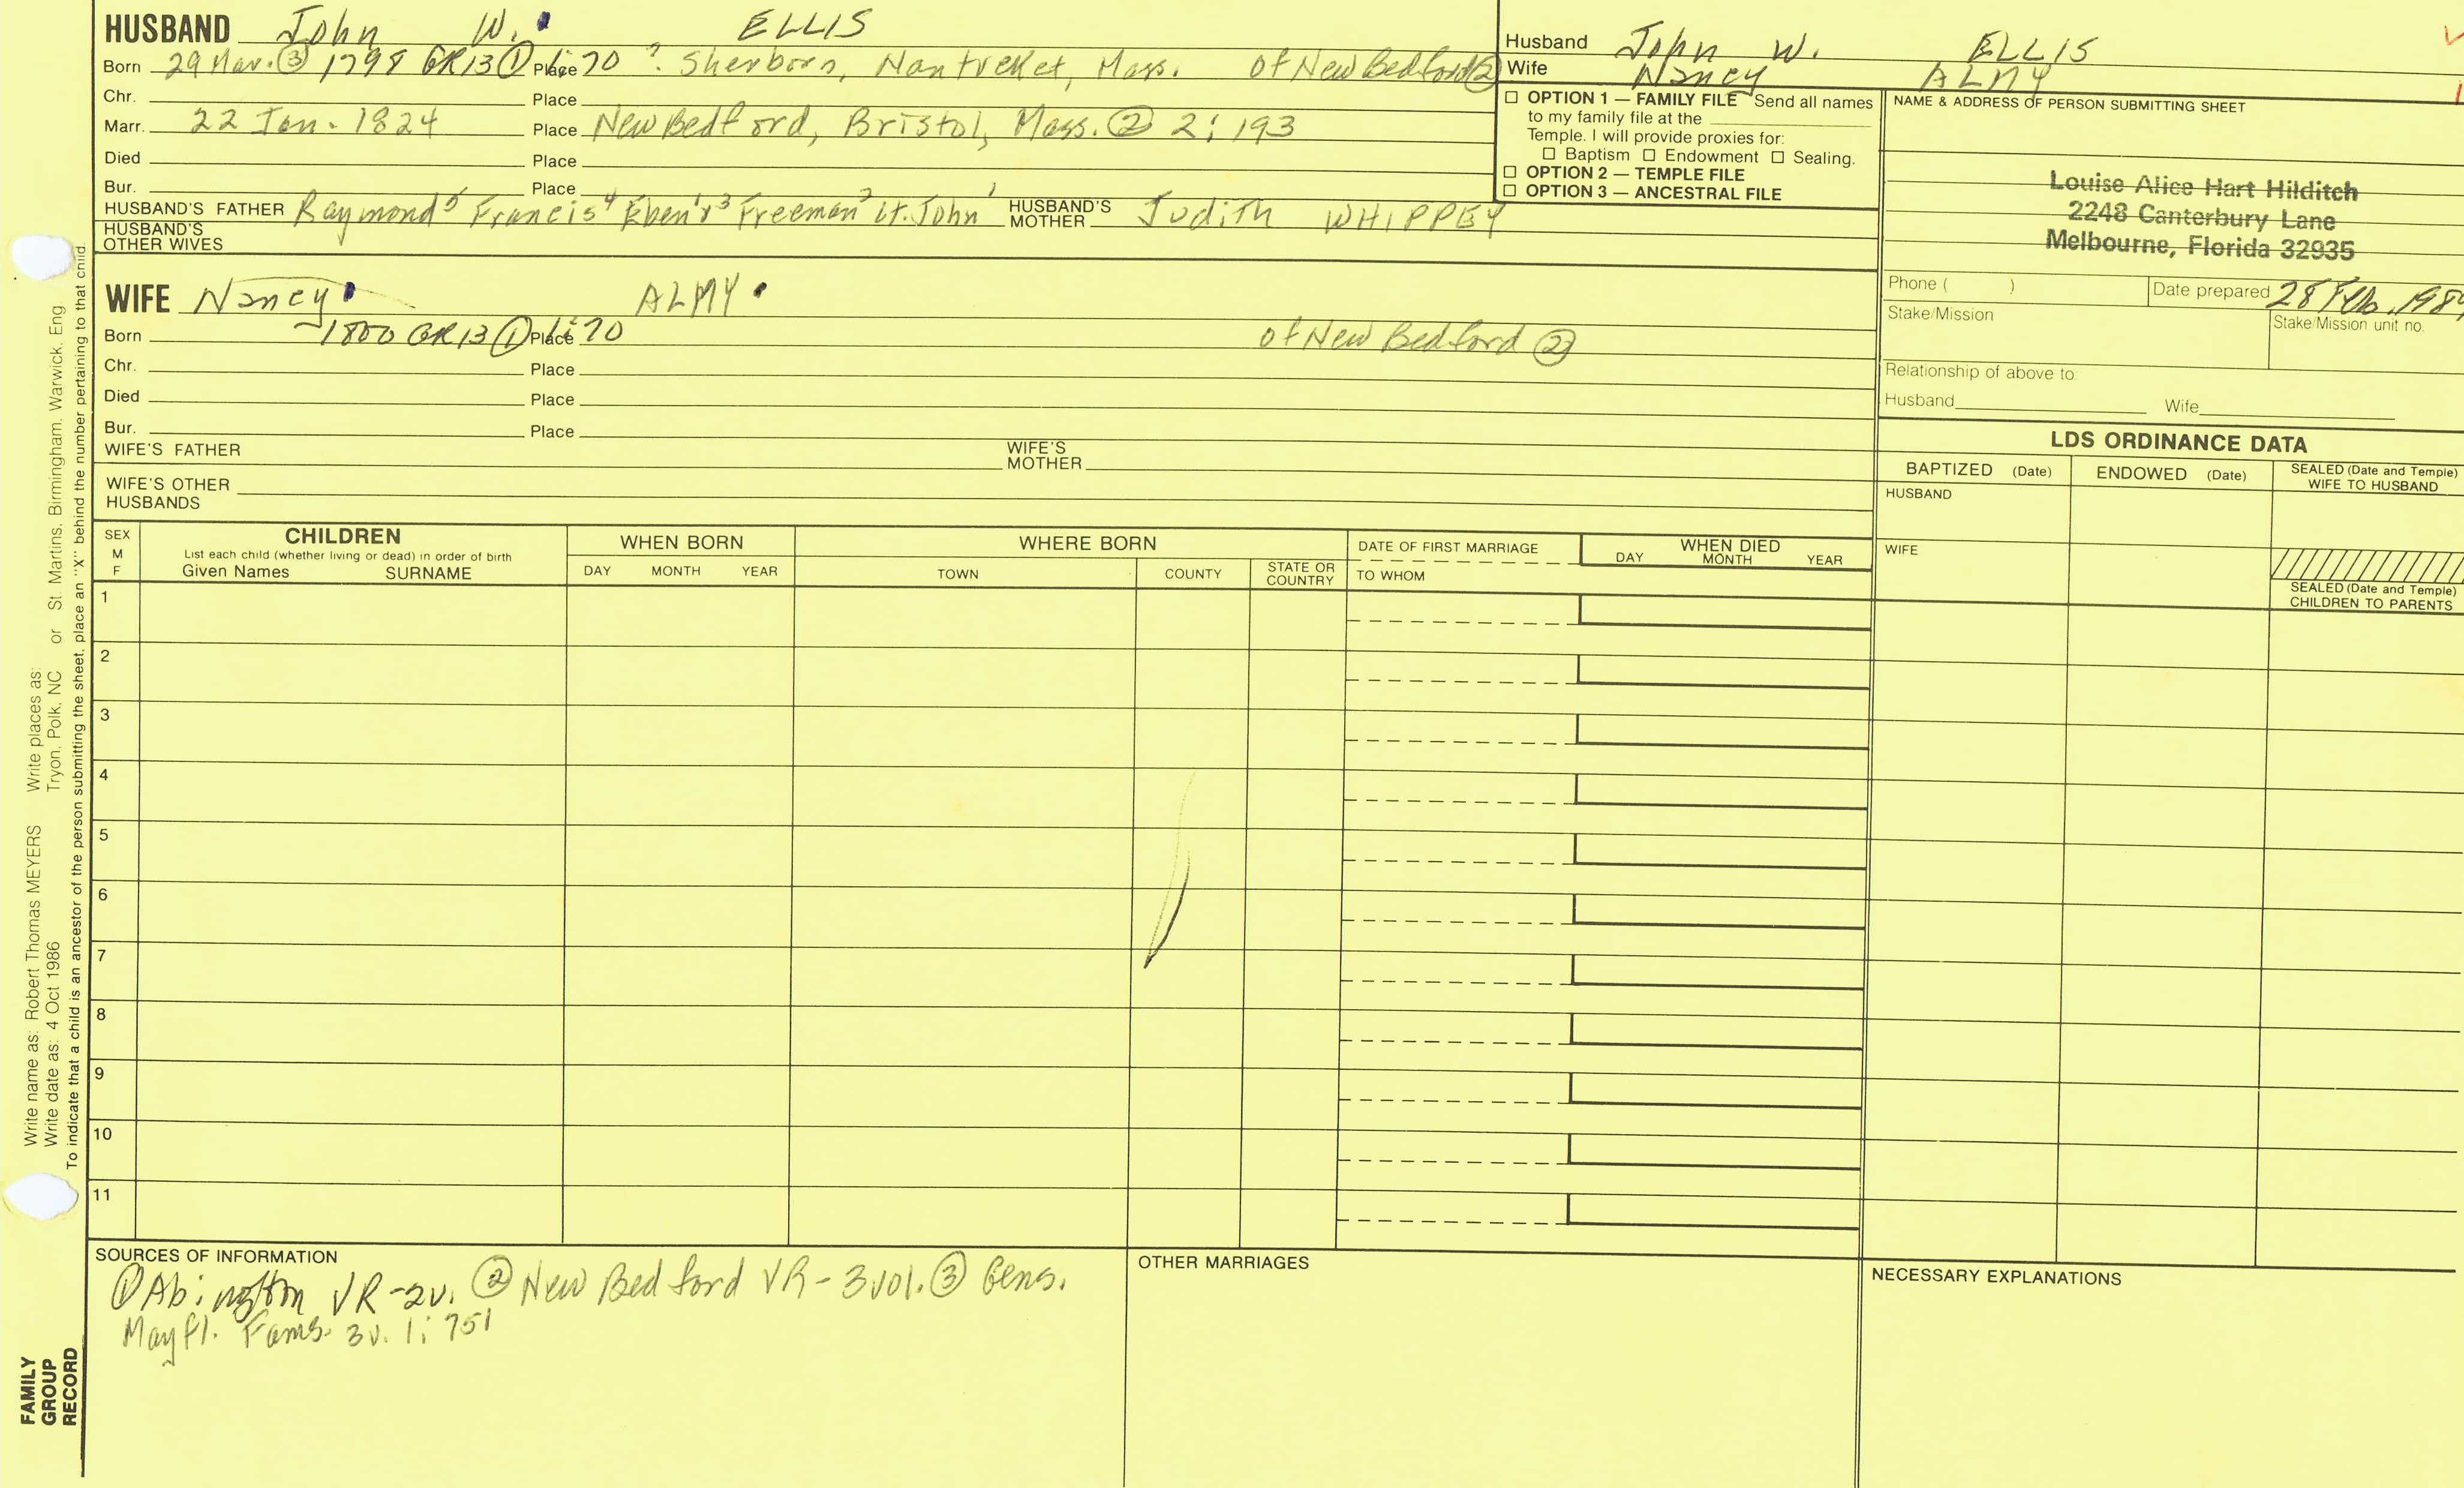 HUSBAND John W. ELLIS
Born 29 Mar. ③ 1798 GR13 ① Place 1:70 ? Sherborn, Nantucket, Mass. of New Bedford ②
Chr. Place
Marr. 22 Jan. 1824 Place New Bedford, Bristol, Mass. ② 2:193
Died Place
Bur. Place
HUSBAND'S FATHER Raymond⁵ Francis⁴ Eben'r³ Freeman² Lt. John¹ HUSBAND'S MOTHER Judith WHIPPEY
HUSBAND'S OTHER WIVES
WIFE Nancy ALMY
Born ~1800 GR13 ① Place 1:70 of New Bedford ②
Chr. Place
Died Place
Bur. Place
WIFE'S FATHER WIFE'S MOTHER
WIFE'S OTHER HUSBANDS
Husband John W. ELLIS
Wife Nancy ALMY
☐ OPTION 1 — FAMILY FILE Send all names
to my family file at the
Temple. I will provide proxies for:
☐ Baptism ☐ Endowment ☐ Sealing.
☐ OPTION 2 — TEMPLE FILE
☐ OPTION 3 — ANCESTRAL FILE
NAME & ADDRESS OF PERSON SUBMITTING SHEET
Louise Alice Hart Hilditch
2248 Canterbury Lane
Melbourne, Florida 32935
Phone ( ) Date prepared 28 Feb. 198
Stake/Mission Stake/Mission unit no.
Relationship of above to:
Husband Wife
LDS ORDINANCE DATA
BAPTIZED (Date) ENDOWED (Date) SEALED (Date and Temple) WIFE TO HUSBAND
HUSBAND
WIFE
SEALED (Date and Temple)
CHILDREN TO PARENTS
SEX M F CHILDREN WHEN BORN WHERE BORN DATE OF FIRST MARRIAGE WHEN DIED
List each child (whether living or dead) in order of birth
Given Names SURNAME DAY MONTH YEAR TOWN COUNTY STATE OR COUNTRY TO WHOM DAY MONTH YEAR
1
2
3
4
5
6
7
8
9
10
11
SOURCES OF INFORMATION
① Abington VR-2v. ② New Bedford VR-3vol. ③ Gens.
Mayfl. Fams. 3v. 1:751
OTHER MARRIAGES
NECESSARY EXPLANATIONS
Write name as: Robert Thomas MEYERS Write places as:
Write date as: 4 Oct 1986 Tryon, Polk, NC or St. Martins, Birmingham, Warwick, Eng
To indicate that a child is an ancestor of the person submitting the sheet, place an "X" behind the number pertaining to that child.
FAMILY
GROUP
RECORD